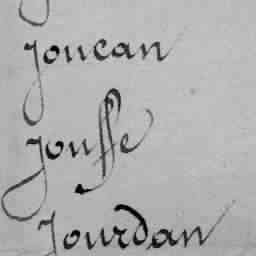 Joucan
Jouffe
Jourdan